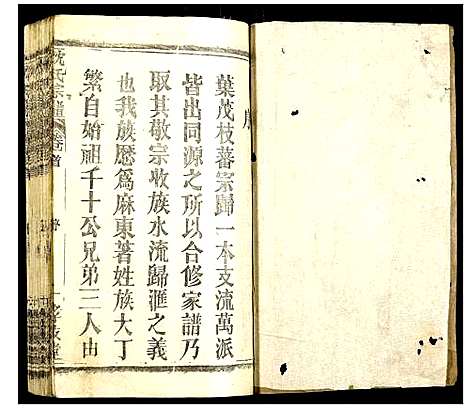 序
葉茂枝蕃宗歸一本支流萬派
皆出同源之所以合修家譜乃
取其敬宗收族水流歸滙之義
也我族歷爲麻東著姓族大丁
繁自始祖千十公兄弟三人由
氏宗譜 卷首 序